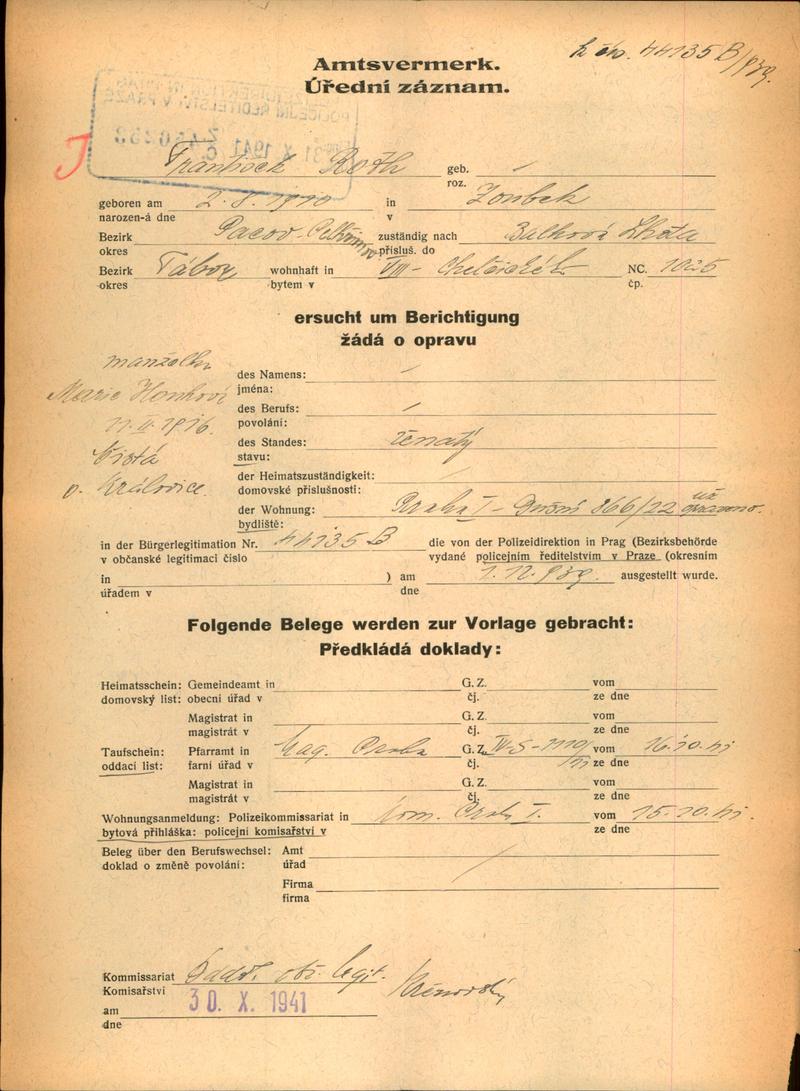 44135 B/939.
Amtsvermerk.
Úřední záznam.
J
František Roth geb.
roz.
geboren am 2.8.1910 in
narozen-á dne v
Bezirk Pacov zuständig nach Lhota
okres přísluš. do
Bezirk Tábor wohnhaft in VIII- NC. 1025
okres bytem v čp.
ersucht um Berichtigung
žádá o opravu
manželka
Marie
1916.
o. Kralovice.
des Namens:
jména:
des Berufs:
povolání:
des Standes: ženatý
stavu:
der Heimatszuständigkeit:
domovské příslušnosti:
der Wohnung: Praha I - Dušní 866/22 už opraveno.
bydliště:
in der Bürgerlegitimation Nr. 44135 B die von der Polizeidirektion in Prag (Bezirksbehörde
v občanské legitimaci číslo vydané policejním ředitelstvím v Praze (okresním
in ) am 1.12.939. ausgestellt wurde.
úřadem v dne
Folgende Belege werden zur Vorlage gebracht:
Předkládá doklady:
Heimatsschein: Gemeindeamt in G. Z. vom
domovský list: obecní úřad v čj. ze dne
Magistrat in G. Z. vom
magistrát v čj. ze dne
Taufschein: Pfarramt in Mag. Praha G. Z. vom 16.10.41
oddací list: farní úřad v čj. ze dne
Magistrat in G. Z. vom
magistrát v čj. ze dne
Wohnungsanmeldung: Polizeikommissariat in kom. Praha I. vom 15.10.41.
bytová přihláška: policejní komisařství v ze dne
Beleg über den Berufswechsel: Amt
doklad o změně povolání: úřad
Firma
firma
Kommissariat legit.
Komisařství
am 30. X. 1941
dne